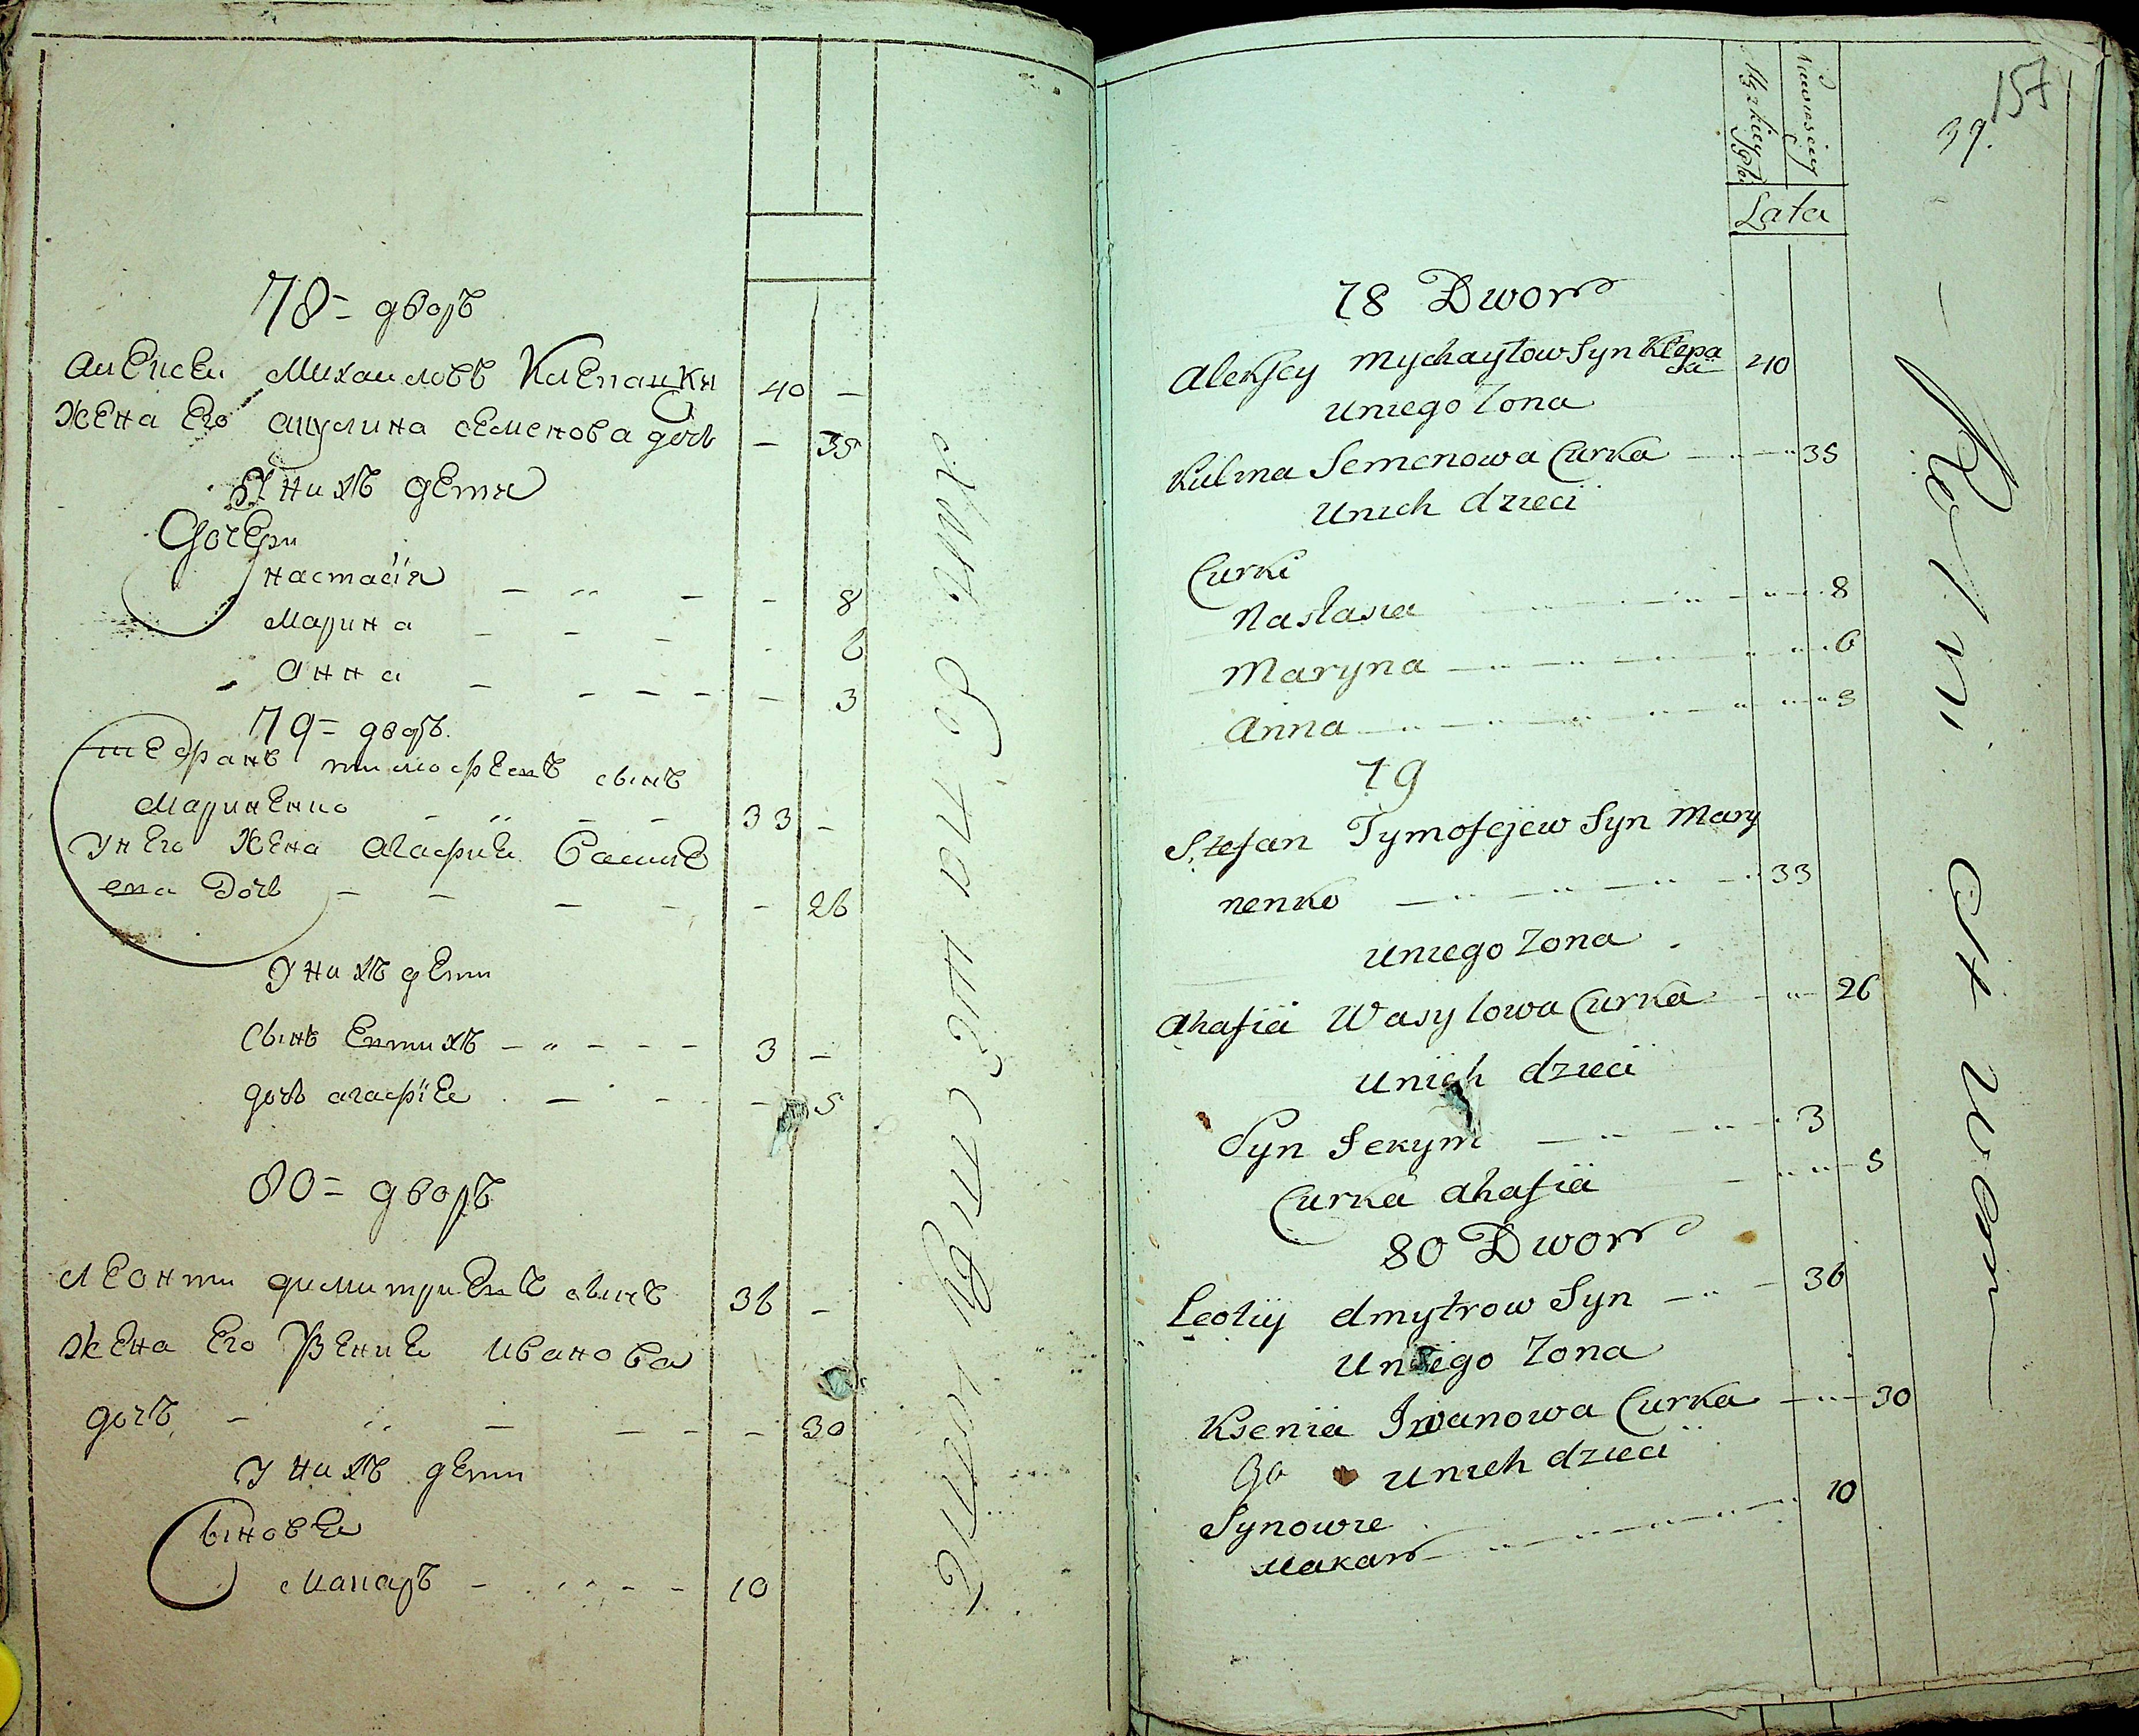 78 = дворъ
Алексеи Михаиловъ Клепацки 40 —
жена Его акулина семенова дочь — 35
У нихъ дети
Дочери
настасія — „ — — 8
Марина — — — 6
Анна — — — — — 3
79 = дворъ.
Стефанъ тимофеевъ сынъ
Мариненко — „ — — 33 —
У него жена агафия Василе
ева Дочь — — — — — 26
У нихъ дети
Сынъ — „ — — — 3 —
дочь агафіе — — — 5
80 = дворъ
Леонти димитриевъ сынъ 36 —
жена Его Ксение иванова
дочъ — „ — — — — 30
У нихъ дети
Сынове
Макаръ — „ — — 10
157
39.
Męzkiey Płci
Niewiesciey
Lata
78 Dworr
Aleksey Mychayłow Syn Klepa 40
Uniego Zona
Kulina Semenowa Curka — „ — „ 35
Unich dzieci
Curki
Nastasia — „ — „ 8
Maryna — „ — „ — „ 6
Anna — „ — „ — „ 3
79
Stefan Tymofejew Syn Mary
nenko — „ — „ — „ 33
Uniego Zona
Ahafia Wasylowa Curka — „ — 26
Unich dzieci
Syn Jekym — „ — „ 3
Curka Ahafia — „ „ — 5
80 Dworr
Leotiy dmytrow Syn — „ — 36
Uniego Zona
Ksenia Iwanowa Curka — „ — 30
Unich dzieci
Synowie
Makarr — „ — „ — 10